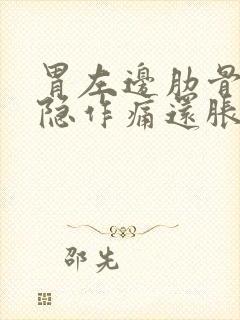 胃左邊肋骨
隐作痛還脹
邵先